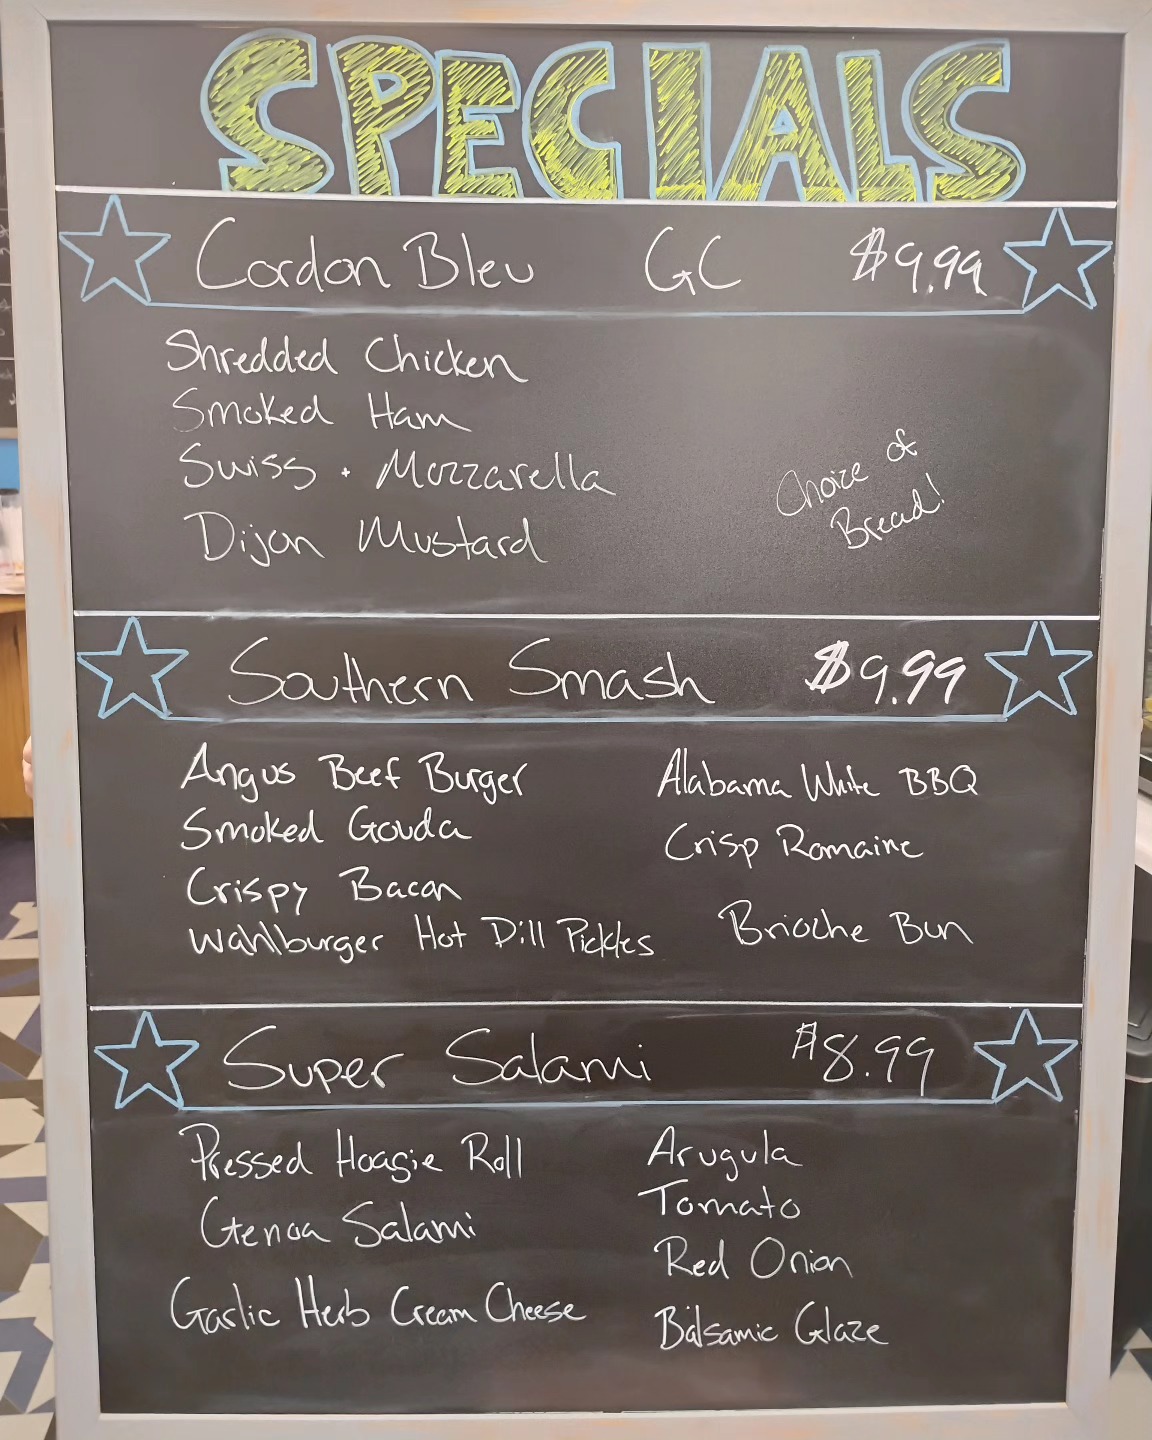 SPECIALS
Cordon Bleu GC $9.99
Shredded Chicken
Smoked Ham
Swiss + Mozzarella
Dijon Mustard
Choice of
Bread!
Southern Smash $9.99
Angus Beef Burger
Smoked Gouda
Crispy Bacon
Wahlburger Hot Dill Pickles
Alabama White BBQ
Crisp Romaine
Brioche Bun
Super Salami $8.99
Pressed Hoagie Roll
Genoa Salami
Garlic Herb Cream Cheese
Arugula
Tomato
Red Onion
Balsamic Glaze